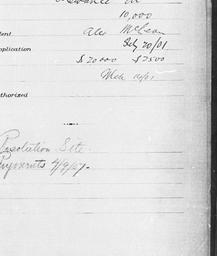 10,000
ent Alex McLean
July 20/01
plication
$20000 $7500
uthorized
Resolution Site.
Payments 4/9/07.